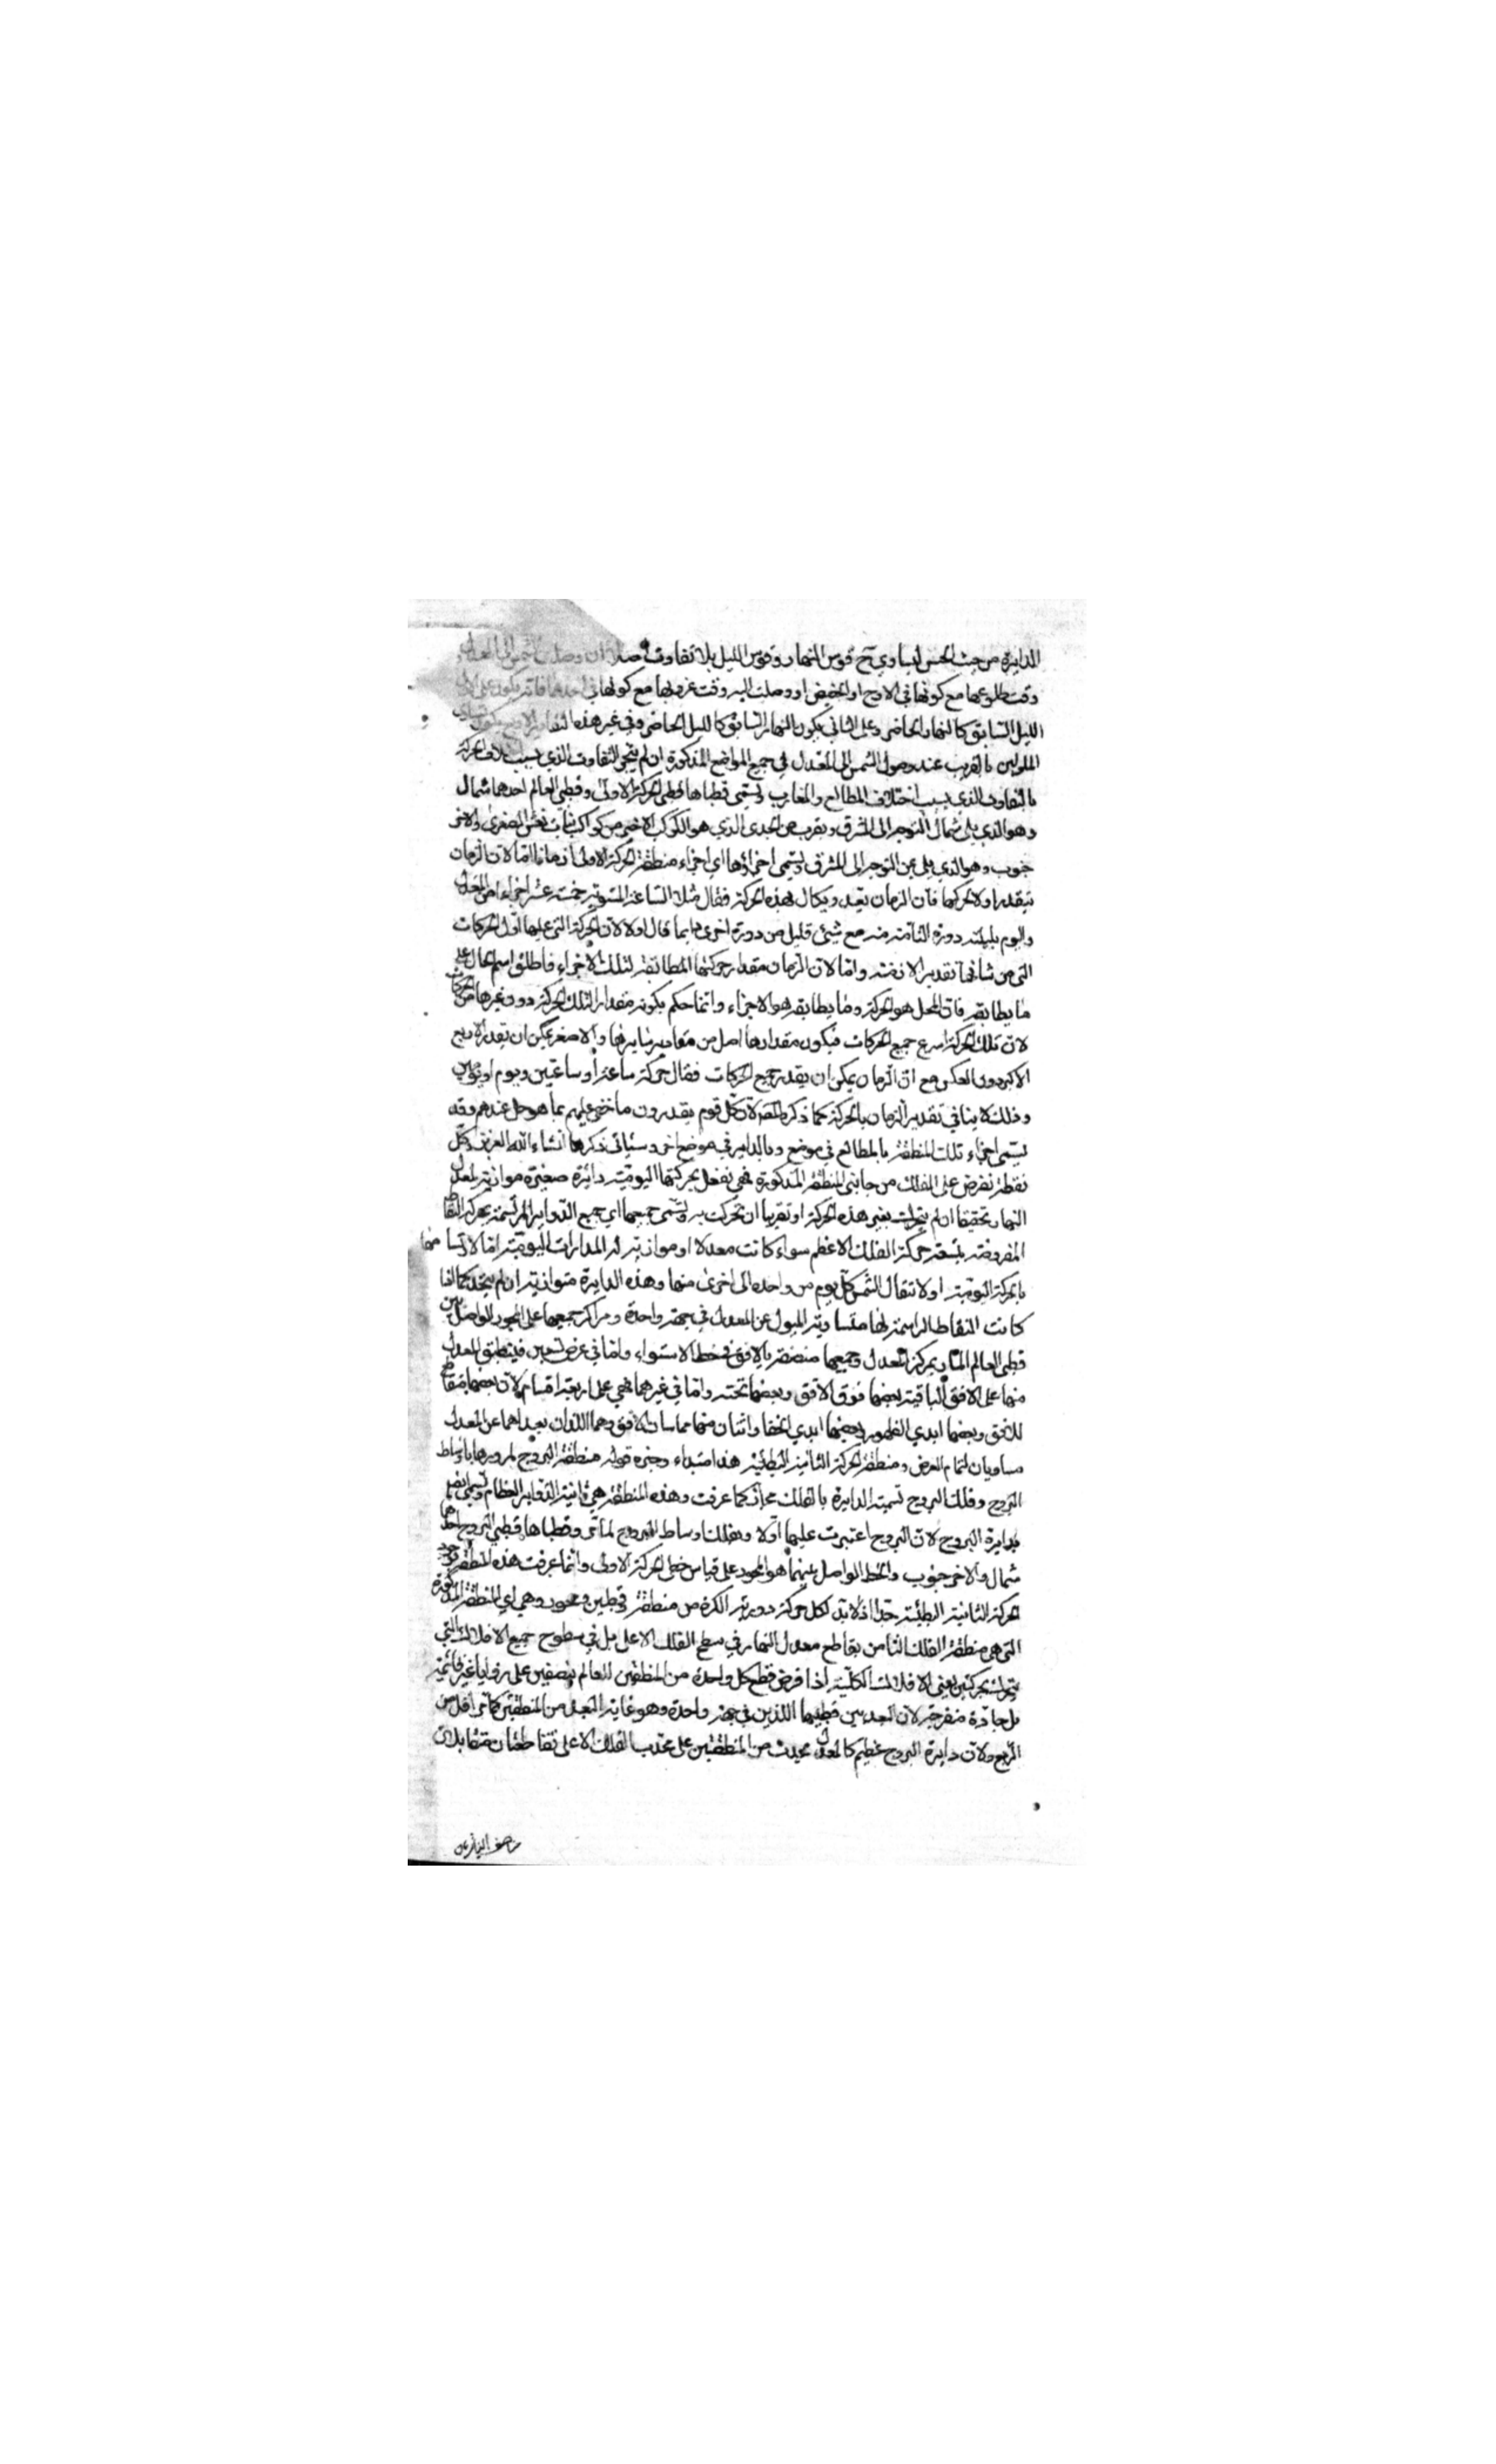 الدايرة من حيث الحس ليساوي ح قوس النهار وقوس الليل بلا تفاوت اصلا ان وصلت الشمس الى المعدل
وقت طلوعها مع كونها في الاوج او الحضيض او وصلت اليه وقت غروبها مع كونها في احدهما فانه يكون على الاول
الليل السابق كالنهار الحاضر وعلى الثاني يكون النهار السابق كالليل الحاضر وفي غير هذه يكون
الملوين بالقريب عند وصول الشمس الى المعدل في جميع المواضع المذكورة ان لم التفاوت الذي بسبب اختلاف الحركة
بالتفاوت الذي بسبب اختلاف المطالع والمغارب ويسمى قطباها قطبي الحركة الاولى وقطبي العالم احدها شمال
وهو الذي يلي شمال المتوجه الى المشرق ويقرب من الجدي الذي هو الكوكب الاخير من كواكب بنات نعش الصغرى والاخر
جنوب وهو الذي يلي يمين المتوجه الى المشرق ويسمى اجزاؤها اي اجزاء منطقة الحركة الاولى ازمانا اما لان الزمان
يتقدر اولا بحركتها فان الزمان يعد ويكال بهذه الحركة فقال مثلا الساعة المستوية خمسة عشر اجزاء من المعدل
واليوم بليلته دورة التامة منه مع شيئ قليل من دورة اخرى دايما قال اولا لان الحركة التي عليها اول الحركات
التي من شانها تقدير الازمنة واما لان الزمان مقدار حركتها المطابقة لتلك الاجزاء فاطلق اسم الحال على
ما يطابقه فان المحل هو الحركة وما يطابقه هو الاجزاء وانما حكم بكونه مقدارا لتلك الحركة دون غيرها من الحركات
لان تلك الحركة اسرع جميع الحركات فيكون مقدارها اصل من مقادير سايرها والاصغر يمكن ان يقدر الاربع
الاكبر دون العكس مع ان الزمان يمكن ان يقدر جميع الحركات فقال حركة ساعة او ساعتين ويوم او يومين
وذلك لا ينافي تقدير الزمان بالحركة كما ذكره المص لان كل قوم يقدرون ما خفي عليهم بما هو حل عندهم وقد
يسمى اجزاء تلك المنطقة بالمطالع في موضع وبالداير في موضع اخر وسياتي ذكرها انشاء الله العزيز وكل
نقطة نفرض على الفلك من جانبي المنطقة المذكورة فهي نفعل بحركتها اليومية دائرة صغيرة موازية لمعدل
النهار تحقيقا ان لم يتحرك بغير هذه الحركة او تقريبا ان تحركت به ويسمى جميعها اي جميع الدواير المرتسمة بحركة النقاط
المفروضة بتبعة حركة الفلك الاعظم سواء كانت معدلا او موازية له المدارات اليومية اما لارتسامها
بالحركة اليومية او لانتقال الشمس كل يوم من واحدة الى اخرى منها وهذه الدايرة متوازية ان لم يتحد كما اذا
كانت النقاط الراسمة لها متساوية الميول عن المعدل في جهة واحدة ومراكز جميعها على المحور الواصل بين
قطبي العالم المار بمركز المعدل وجميعها منصفة بالافق في خط الاستواء واما في عرض تسعين فينطبق المعدل
منها على الافق الباقية بعضها فوق الافق وبعضها تحته واما في غيرهما فهي على اربعة اقسام لان بعضها متقاطع
للافق وبعضها ابدي الظهور وبعضها ابدي الخفا واثنان منها مماسان للافق وهما اللذان بعداهما عن المعدل
مساويان لتمام العرض ومنطقة الحركة الثانية البطيئة هذا مبتداء وخبره قوله منطقة البروج لمرورها باوساط
البروج وفلك البروج تسمية الدايرة بالفلك مجازا كما عرفت وهذه المنطقة هي ثانية الدواير العظام وتسمى ايضا
بدايرة البروج لان البروج اعتبرت عليها اولا وبفلك اوساط البروج لما مر وقطباها قطبي البروج احدهما
شمال والاخر جنوب والخط الواصل بينهما هو المحور على قياس خطي الحركة الاولى وانما عرفت هذه المنطقة بوجود
الحركة الثانية البطيئة جدا اذ لا بد لكل حركة دورية الكرة من منطقة وقطبين ومحور وهي اي المنطقة المذكورة
التي هي منطقة الفلك الثامن يقاطع معدل النهار في سطح الفلك الاعلى بل في سطوح جميع الافلاك التي
يتحرك بحركتين يعني الافلاك الكلية اذا فرض قطع كل واحدة من المنطقتين للعالم بنصفين على زوايا غير قائمة
بل حادة منفرجة لان البعد بين قطبيهما اللذين في جهة واحدة وهو غاية البعد من المنطقتين كما مر اقل من
الربع ولان دايرة البروج عظيم كالمعدل يحدث من المنطقتين على محدب الفلك الاعلى تقاطعان متقابلان